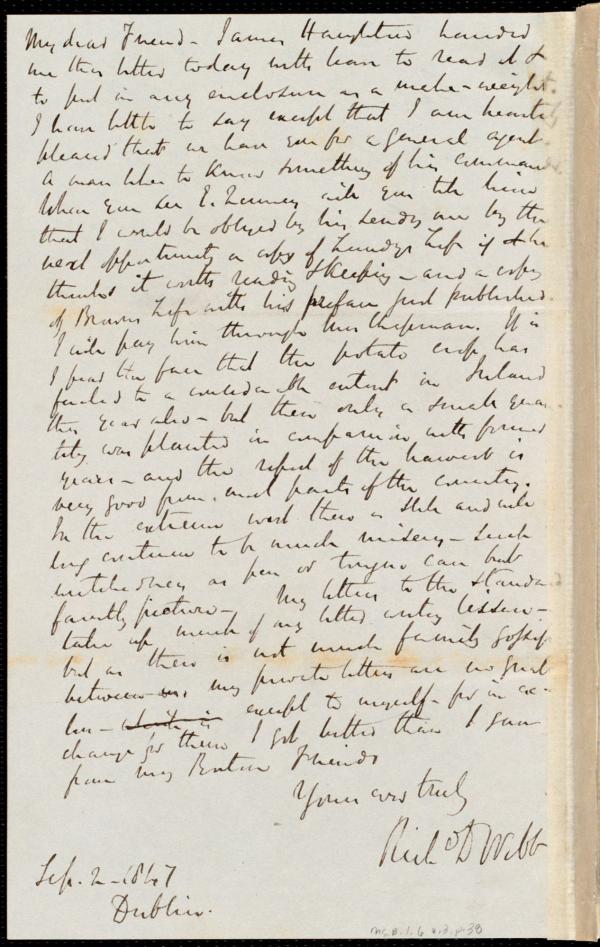 My dear Friend - James Haughton handed
me this letter today with leave to read it &
to put in any enclosure as a make-weight.
I have little to say except that I am heartily
pleased that we have you for a general agent.
A man likes to know something of his commander.
When you see E. Quincy will you tell him
that I would be obliged by his sending me by the
next opportunity a copy of Lundy's Life if he
thinks it worth reading & keeping - and a copy
of Brown's Life with his preface just published.
I will pay him through Mrs Chapman. It is
I fear the fact that the potato crop has
failed to a considerable extent in Ireland
this year also - but then only a small quan-
tity was planted in comparison with former
years - and the report of the harvest is
very good from most parts of the country.
In the extreme west there is still and will
long continue to be much misery - such
wretchedness as pen or tongue can but
faintly picture - My letters to the Standard
take up much of my letter writing leisure -
but as there is not much family gossip
between us, my private letters are no great
loss - which is except to myself - for in ex-
change for them I get better than I gave
from my Boston Friends
Yours ever truly
Richd D Webb
Sep. 2 - 1847
Dublin.
Ms. B. 1. 6 v. 2, p. 38